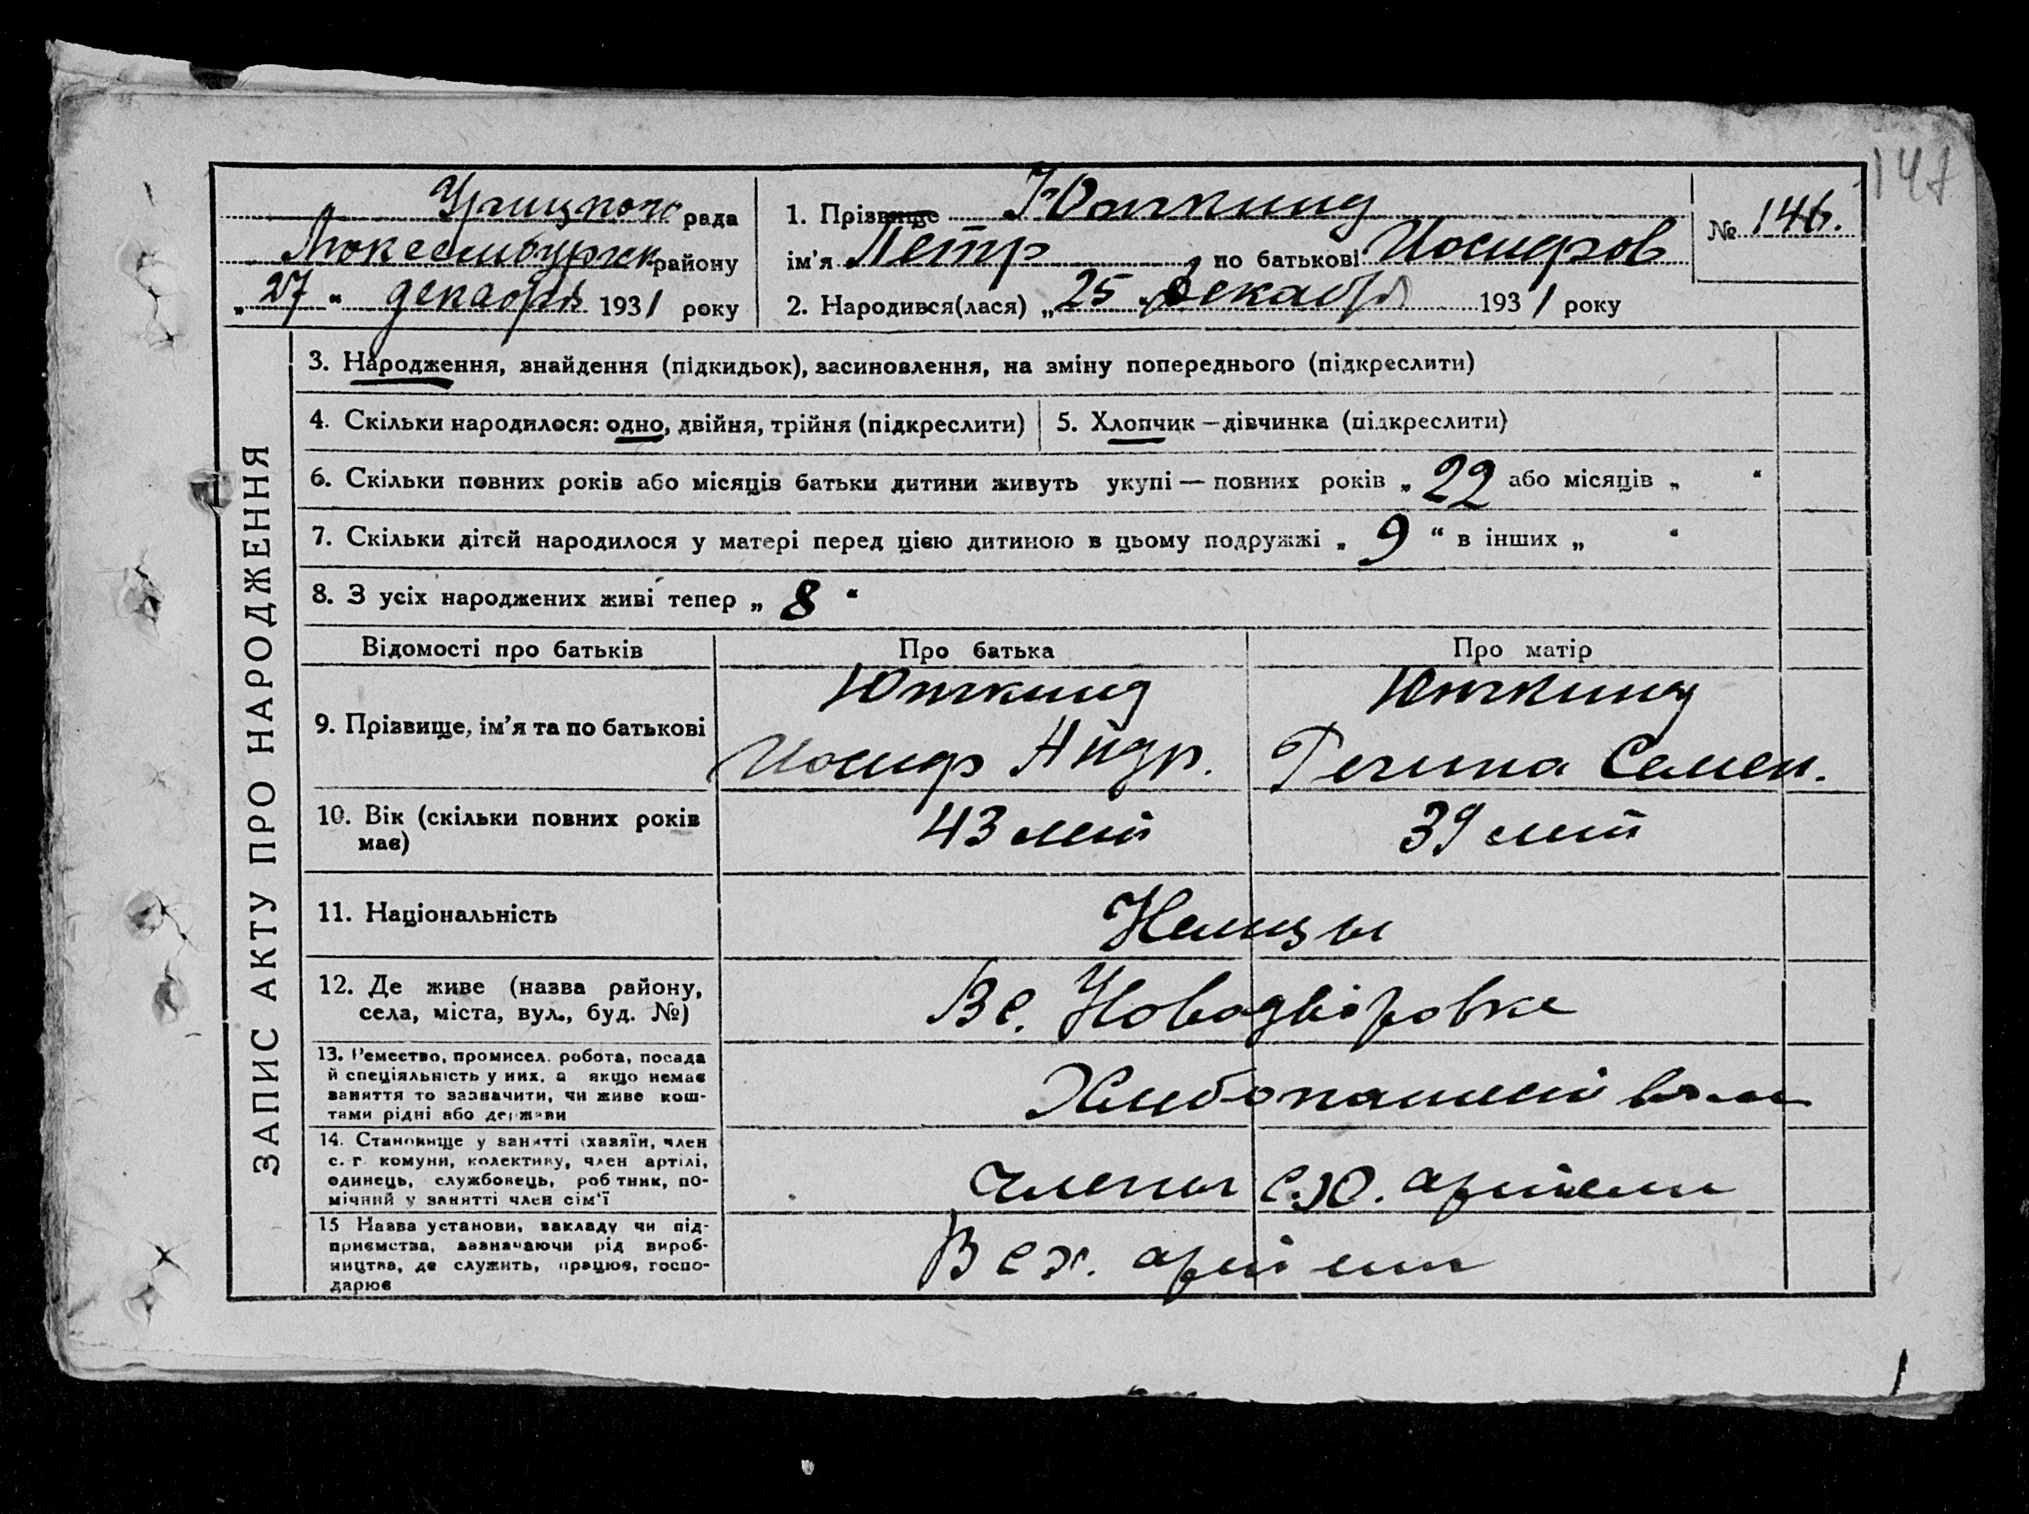 147
Урицкого рада
Люксембургск району
„27“ декабря 1931 року
1. Прізвище Юнгкинд
ім'я Петр по батькові Иосифов
2. Народився(лася) „25“ декабря 1931 року
№ 146.
ЗАПИС АКТУ ПРО НАРОДЖЕННЯ
3. Народження, знайдення (підкидьок), засиновлення, на зміну попереднього (підкреслити)
4. Скільки народилося: одно, двійня, трійня (підкреслити)
5. Хлопчик – дівчинка (підкреслити)
6. Скільки повних років або місяців батьки дитини живуть укупі — повних років „22 або місяців „ “
7. Скільки дітей народилося у матері перед цією дитиною в цьому подружжі „9“ в інших „ “
8. З усіх народжених живі тепер „8“
Відомості про батьків Про батька Про матір
9. Прізвище, ім'я та по батькові
Юнгкинд
Иосиф Андр.
Юнгкинд
Регина Семен.
10. Вік (скільки повних років
має)
43 лет
39 лет
11. Національність
Немцы
12. Де живе (назва району,
села, міста, вул., буд. №)
В с. Новодворовке
13. Ремество, промисел, робота, посада
й спеціяльність у них, а якщо немає
заняття то зазначити, чи живе кош-
тами рідні або держави
Хлебопашеством
14. Становище у занятті (хазяїн, член
с. г. комуни, колективу, член артілі,
одинець, службовець, робітник, по-
мічний у занятті член сім'ї
Члены с.х. артели
15 Назва установи, закладу чи під-
приємства, зазначаючи рід вироб-
ництва, де служить, працює, госпо-
дарює
В с.х. артели